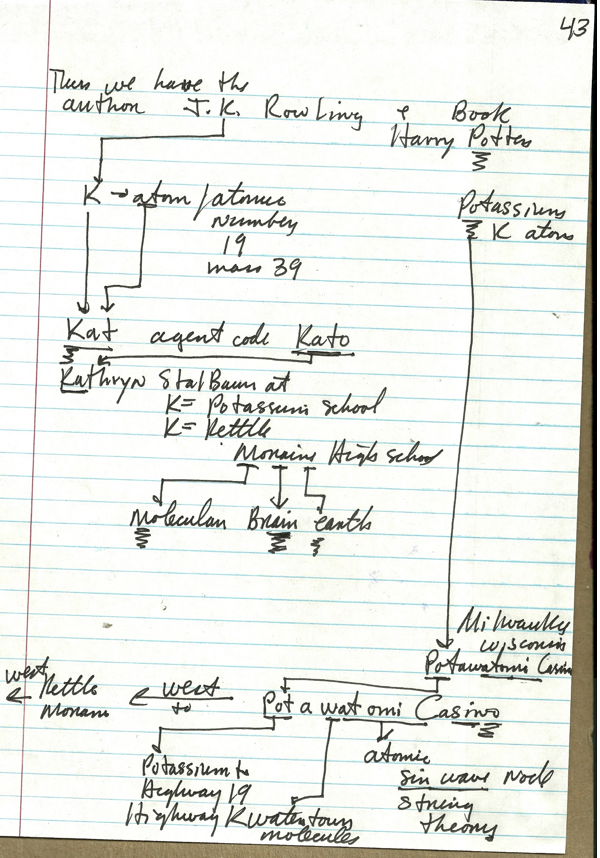 43
Thus we have the
author J.K. Rowling + Book
Harry Potter
K → atom / atomic
number
19
mass 39
Potassium
K atom
Kat agent code Kato
Kathryn StalBaum at
K = Potassium school
K = Kettle
Moraine High school
Molecular Brain earth
Milwaukee
Wisconsin
Potawatomi Casino
west Kettle Moraine
west to
Pot a wat omi Casino
atomic
Sin wave Node
String
theory
Potassium to
Highway 19
Highway K watertown
molecules